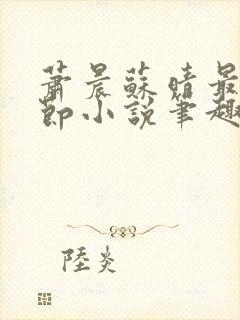 蕭晨蘇晴最
節小說筆趣
陸炎